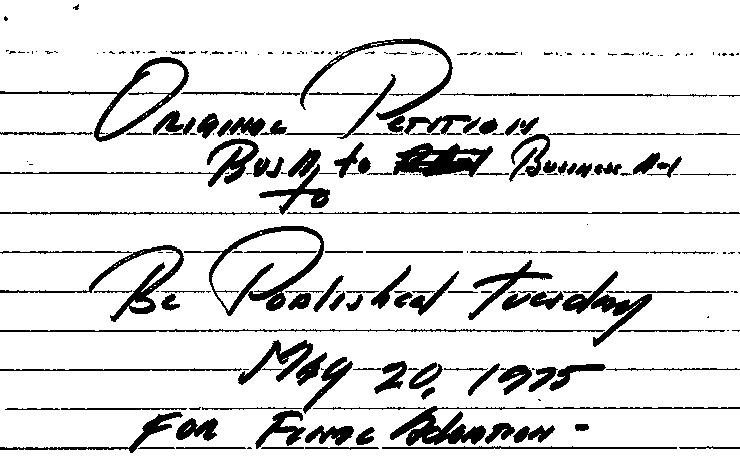 Original Petition
Bus A, to Business A-1
to
Be Published Tuesday
May 20, 1975
For Final Adoption -